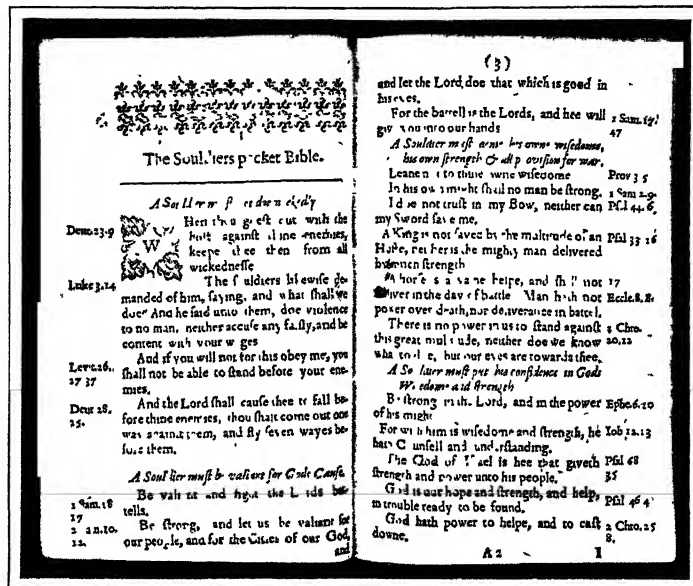 The Souldiers pocket Bible.
A Souldier must not doe wickedly
Deut. 23.9
WHen thou goest out with the
host against thine enemies,
keepe thee then from all
wickednesse
Luke 3.14
The Souldiers likewise de-
manded of him, saying, and what shall we
doe? And he said unto them, doe violence
to no man, neither accuse any falsly, and be
content with your wages
Levit. 26.
27 37
And if you will not for this obey me, you
shall not be able to stand before your ene-
mies.
Deut 28.
25.
And the Lord shall cause thee to fall be-
fore thine enemies, thou shalt come out one
way against them, and fly seven wayes be-
fore them.
A Souldier must be valiant for Gods Cause.
1 Sam. 18
17
Be valiant and fight the Lords bat-
tells.
2 Sam. 10.
12.
Be strong, and let us be valiant for
our people, and for the Cities of our God,
and
(3)
and let the Lord, doe that which is good in
his eyes.
For the battell is the Lords, and hee will 1 Sam. 17.
give you into our hands 47
A Souldier must
his own strength & all provision for war.
Leane not to thine owne wisedome Prov 3 5
In his own might shall no man be strong. 1 Sam 2.9.
I doe not trust in my Bow, neither can Psal 44.6
my Sword save me.
A King is not saved by the multitude of an Psal 33 16
Hoste, neither is the mighty man delivered
by much strength
A horse is a vaine helpe, and shall not 17
deliver in the day of battle Man hath not Eccle. 8.8.
power over death, nor deliverance in battel.
There is no power in us to stand against 2 Chro.
this great multitude, neither doe we know 20,12
what to doe, but our eyes are towards thee.
A Souldier must put his confidence in Gods
Wisedome and strength
Be strong in the Lord, and in the power Ephe. 6.10
of his might
For with him is wisedome and strength, he Iob 12.13
hath Counsell and understanding.
The God of Israel is hee that giveth Psal 68
strength and power unto his people. 35
God is our hope and strength, and help, Psal 46 4
in trouble ready to be found.
God hath power to helpe, and to cast 2 Chro. 25
downe. 8.
A 2 I